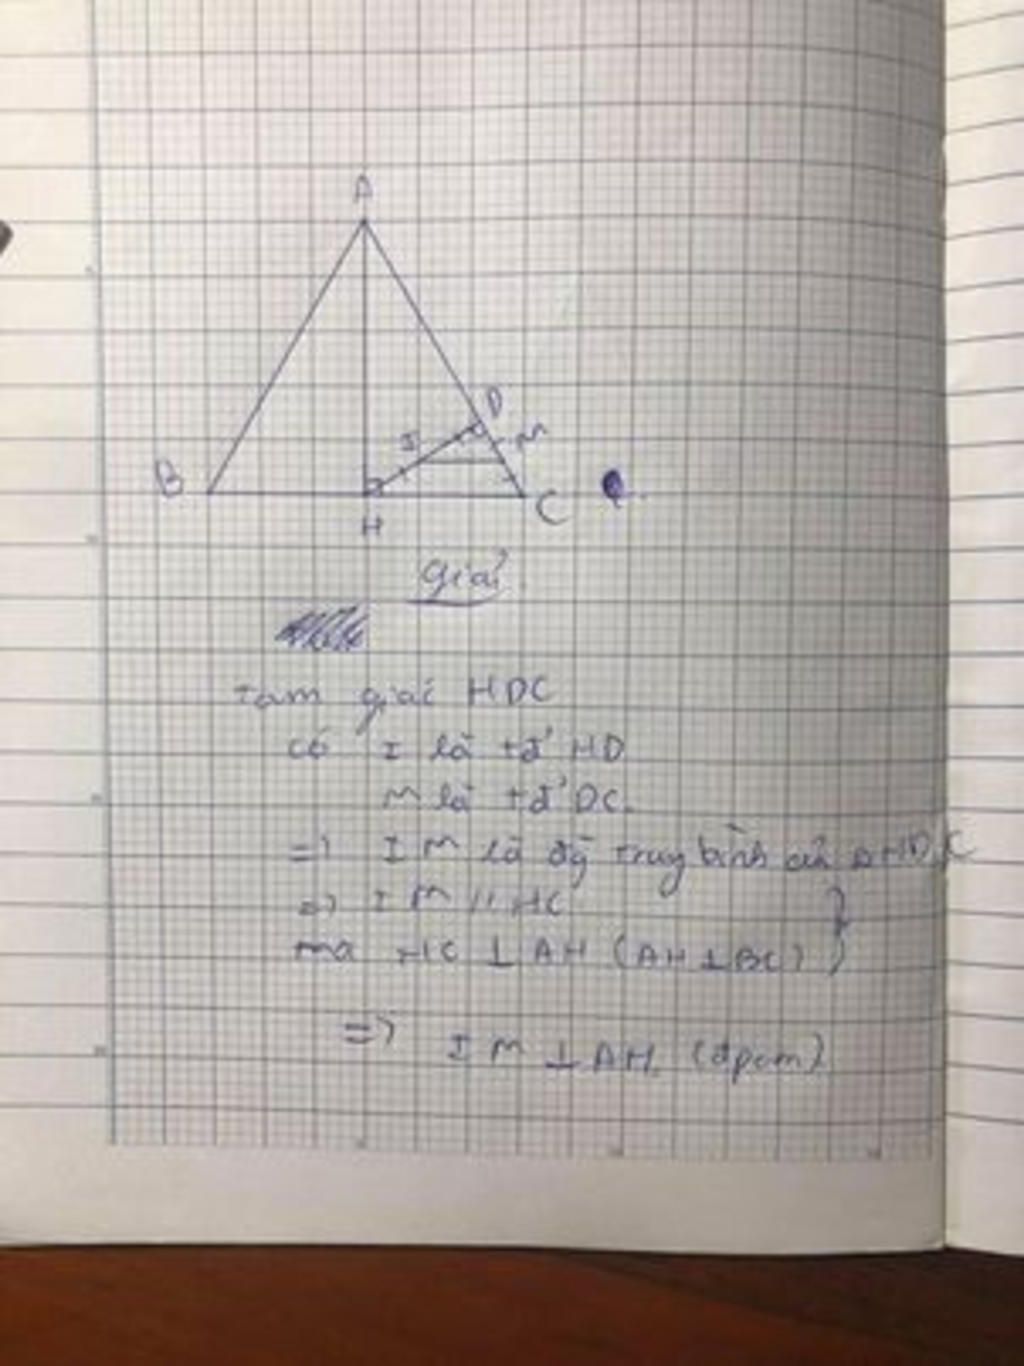 A
D
I
M
B
H
C
Giải
Tam giác HDC
có I là tđ' HD
M là tđ' DC.
=> IM là đg̃ trung bình của ΔHDC
=> IM // HC
mà HC ⊥ AH (AH ⊥ BC)
=> IM ⊥ AH. (đpcm)